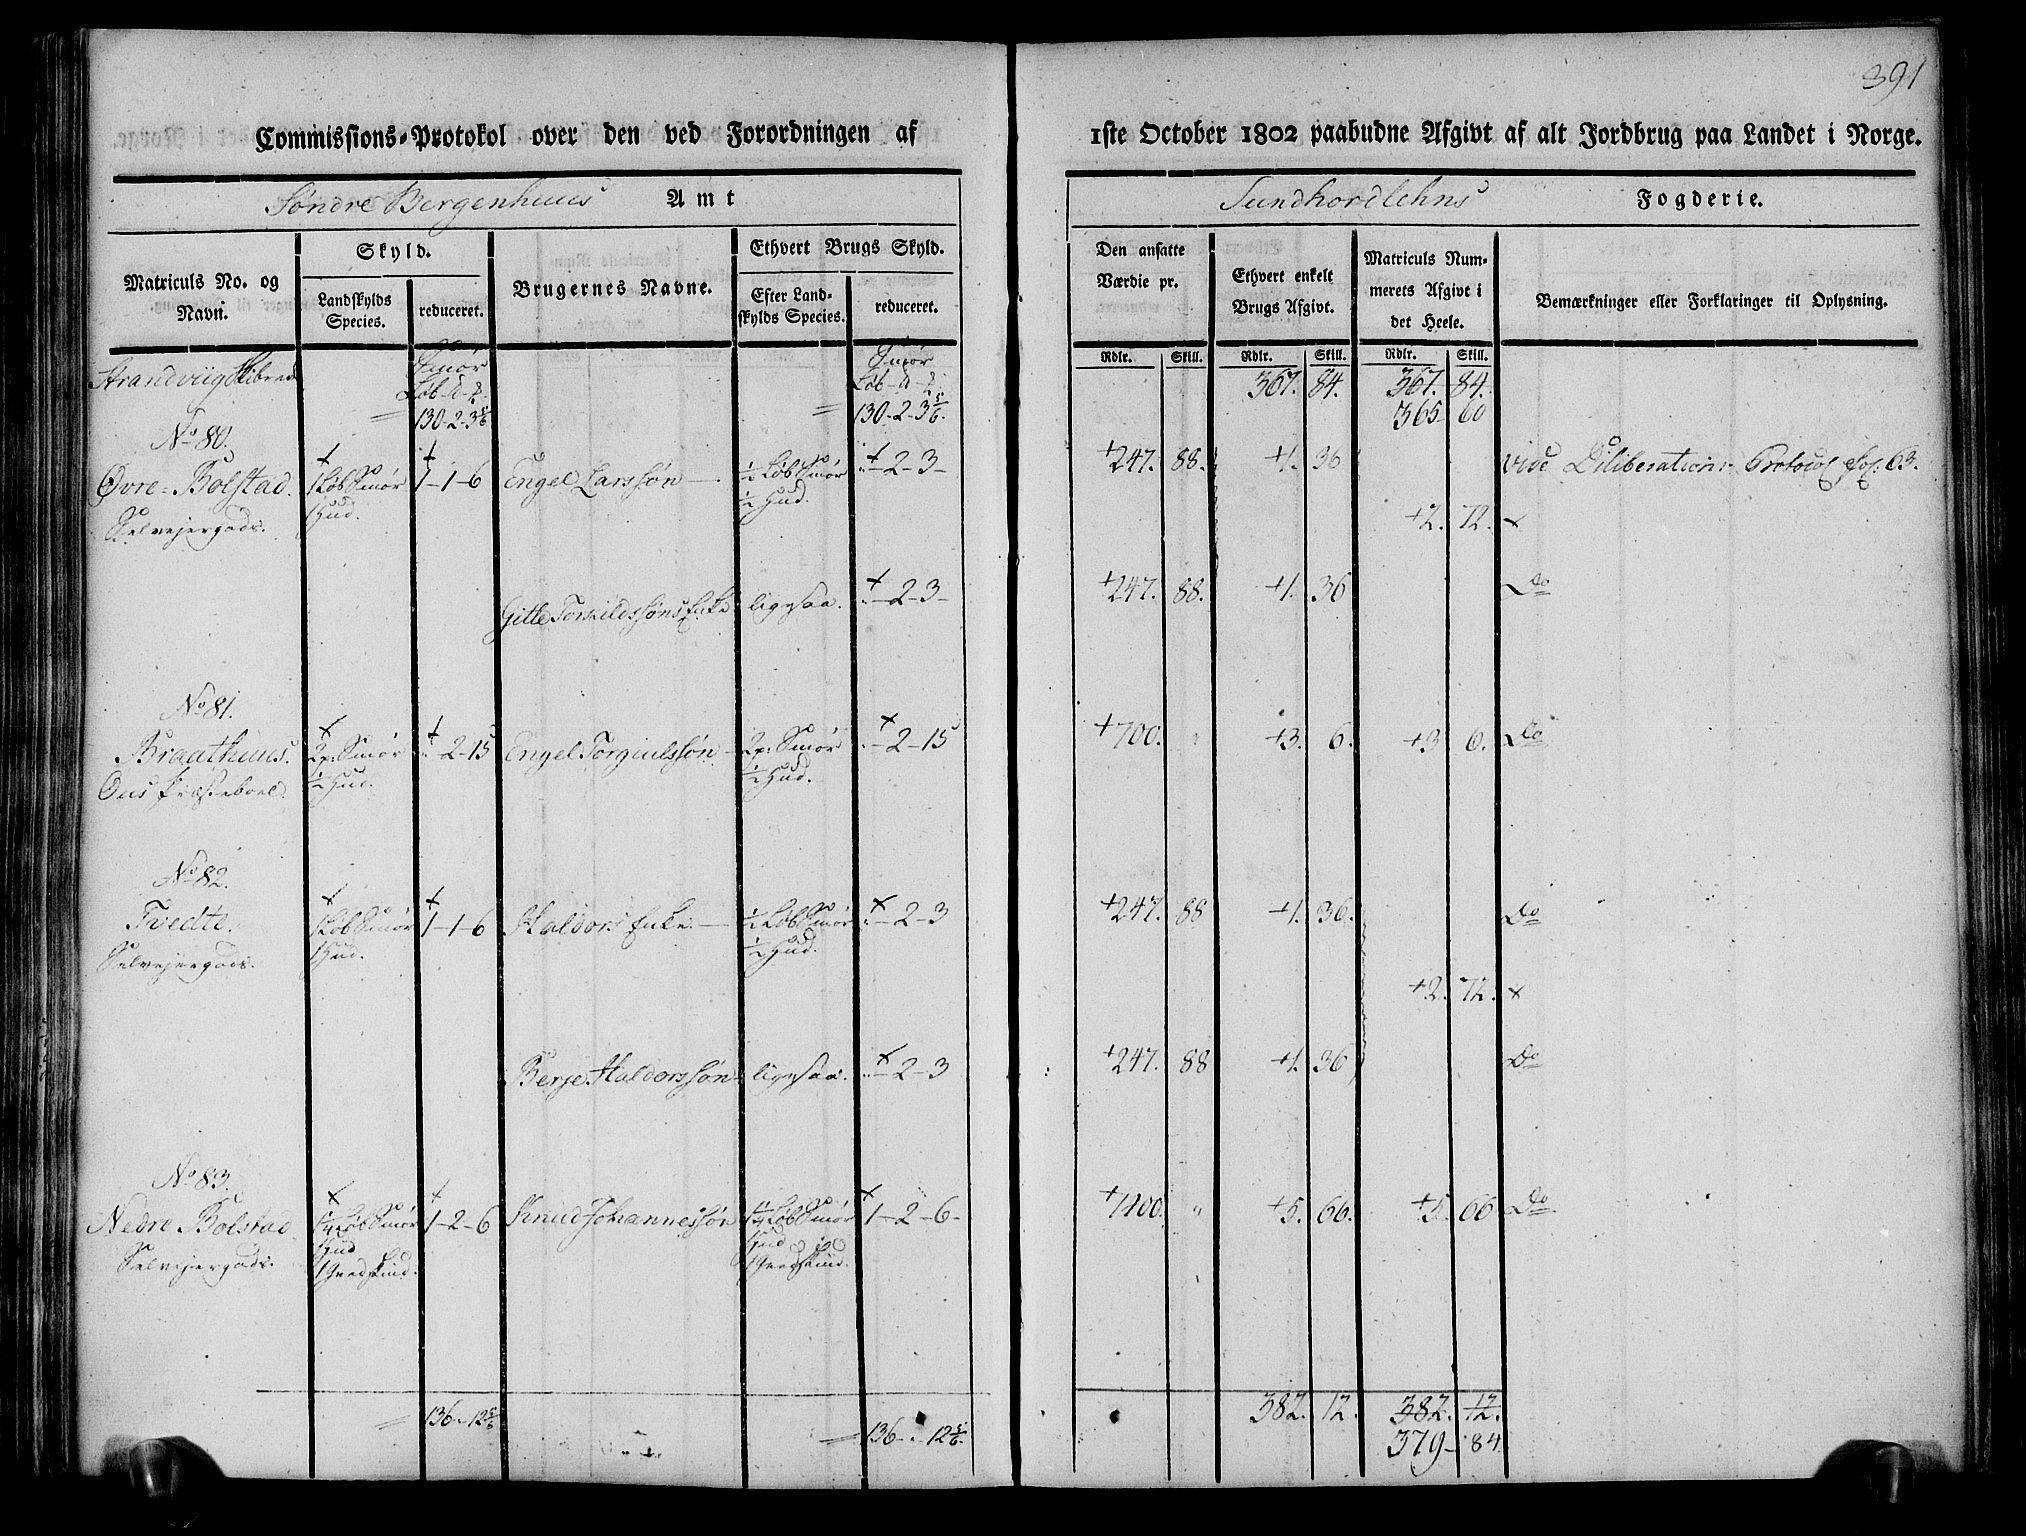 391
Commissions-Protokol over den ved Forordningen af
1ste October 1802 paabudne Afgivt af alt Jordbrug paa Landet i Norge.
Søndre Bergenhuus Amt
Sundhordlehns Fogderie.
Matriculs No. og Navn.
Skyld.
Landskylds Species.
reduceret.
Brugernes Navne.
Ethvert Brugs Skyld.
Efter Landskylds Species.
reduceret.
Den ansatte Værdie pr.
Ethvert enkelt Brugs Afgivt.
Matriculs Nummerets Afgivt i det Heele.
Bemærkninger eller Forklaringer til Oplysning.
Rdlr. Skill. Rdlr. Skill. Rdlr. Skill.
Strandviig Skibrede Smør Smør
130-2-3 5/6 130-2-3 5/6 367. 84. 367. 84.
365 60
No 80.
Øvre-Bolstad. 1 Løb Smør 1-1-6 Engel Larssøn 1/2 Løb Smør "-2-3 +247. 88. +1. 36 vide Deliberations Protocol Fol. 63.
Selvejergods. 1 Hud. 1/2 Hud.
+2. 72. x
Gitle Torkildssøns Enke ligesaa. "-2-3 +247. 88. +1. 36 Do
No 81.
Braathuus. 2 p. Smør "-2-15 Engel Torgiulssøn 2 p. Smør "-2-15 +700. " +3. 6. +3 6. Do
Ous Præsteboel. 1/2 Hud. 1/2 Hud.
No 82.
Tvedte. 1 Løb Smør 1-1-6 Haldors Enke 1/2 Løb Smør "-2-3 +247. 88 +1. 36. Do
Selvejergods. 1 Hud. 1/2 Hud.
+2. 72. x
Berje Haldorssøn ligesaa. "-2-3 +247. 88 +1. 36 Do
No 83.
Nedre Bolstad 1 1/4 Løb Smør 1-2-6 Knud Johannessøn 1 1/4 Løb Smør 1-2-6 " +5. 66. +5. 66 Do
Selvejergods. 1 Hud 1 Hud
1 Gjedskind. 1 Gjedskind.
136-"-12 5/6 136-"-12 5/6. 382. 12. 382. 12.
379- 84.